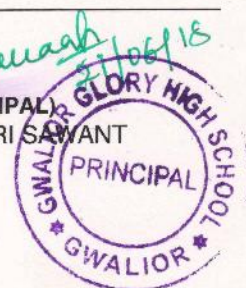 21/06/18
IPAL)
RI SAWANT
GWALIOR GLORY HIGH SCHOOL
PRINCIPAL
★ GWALIOR ★